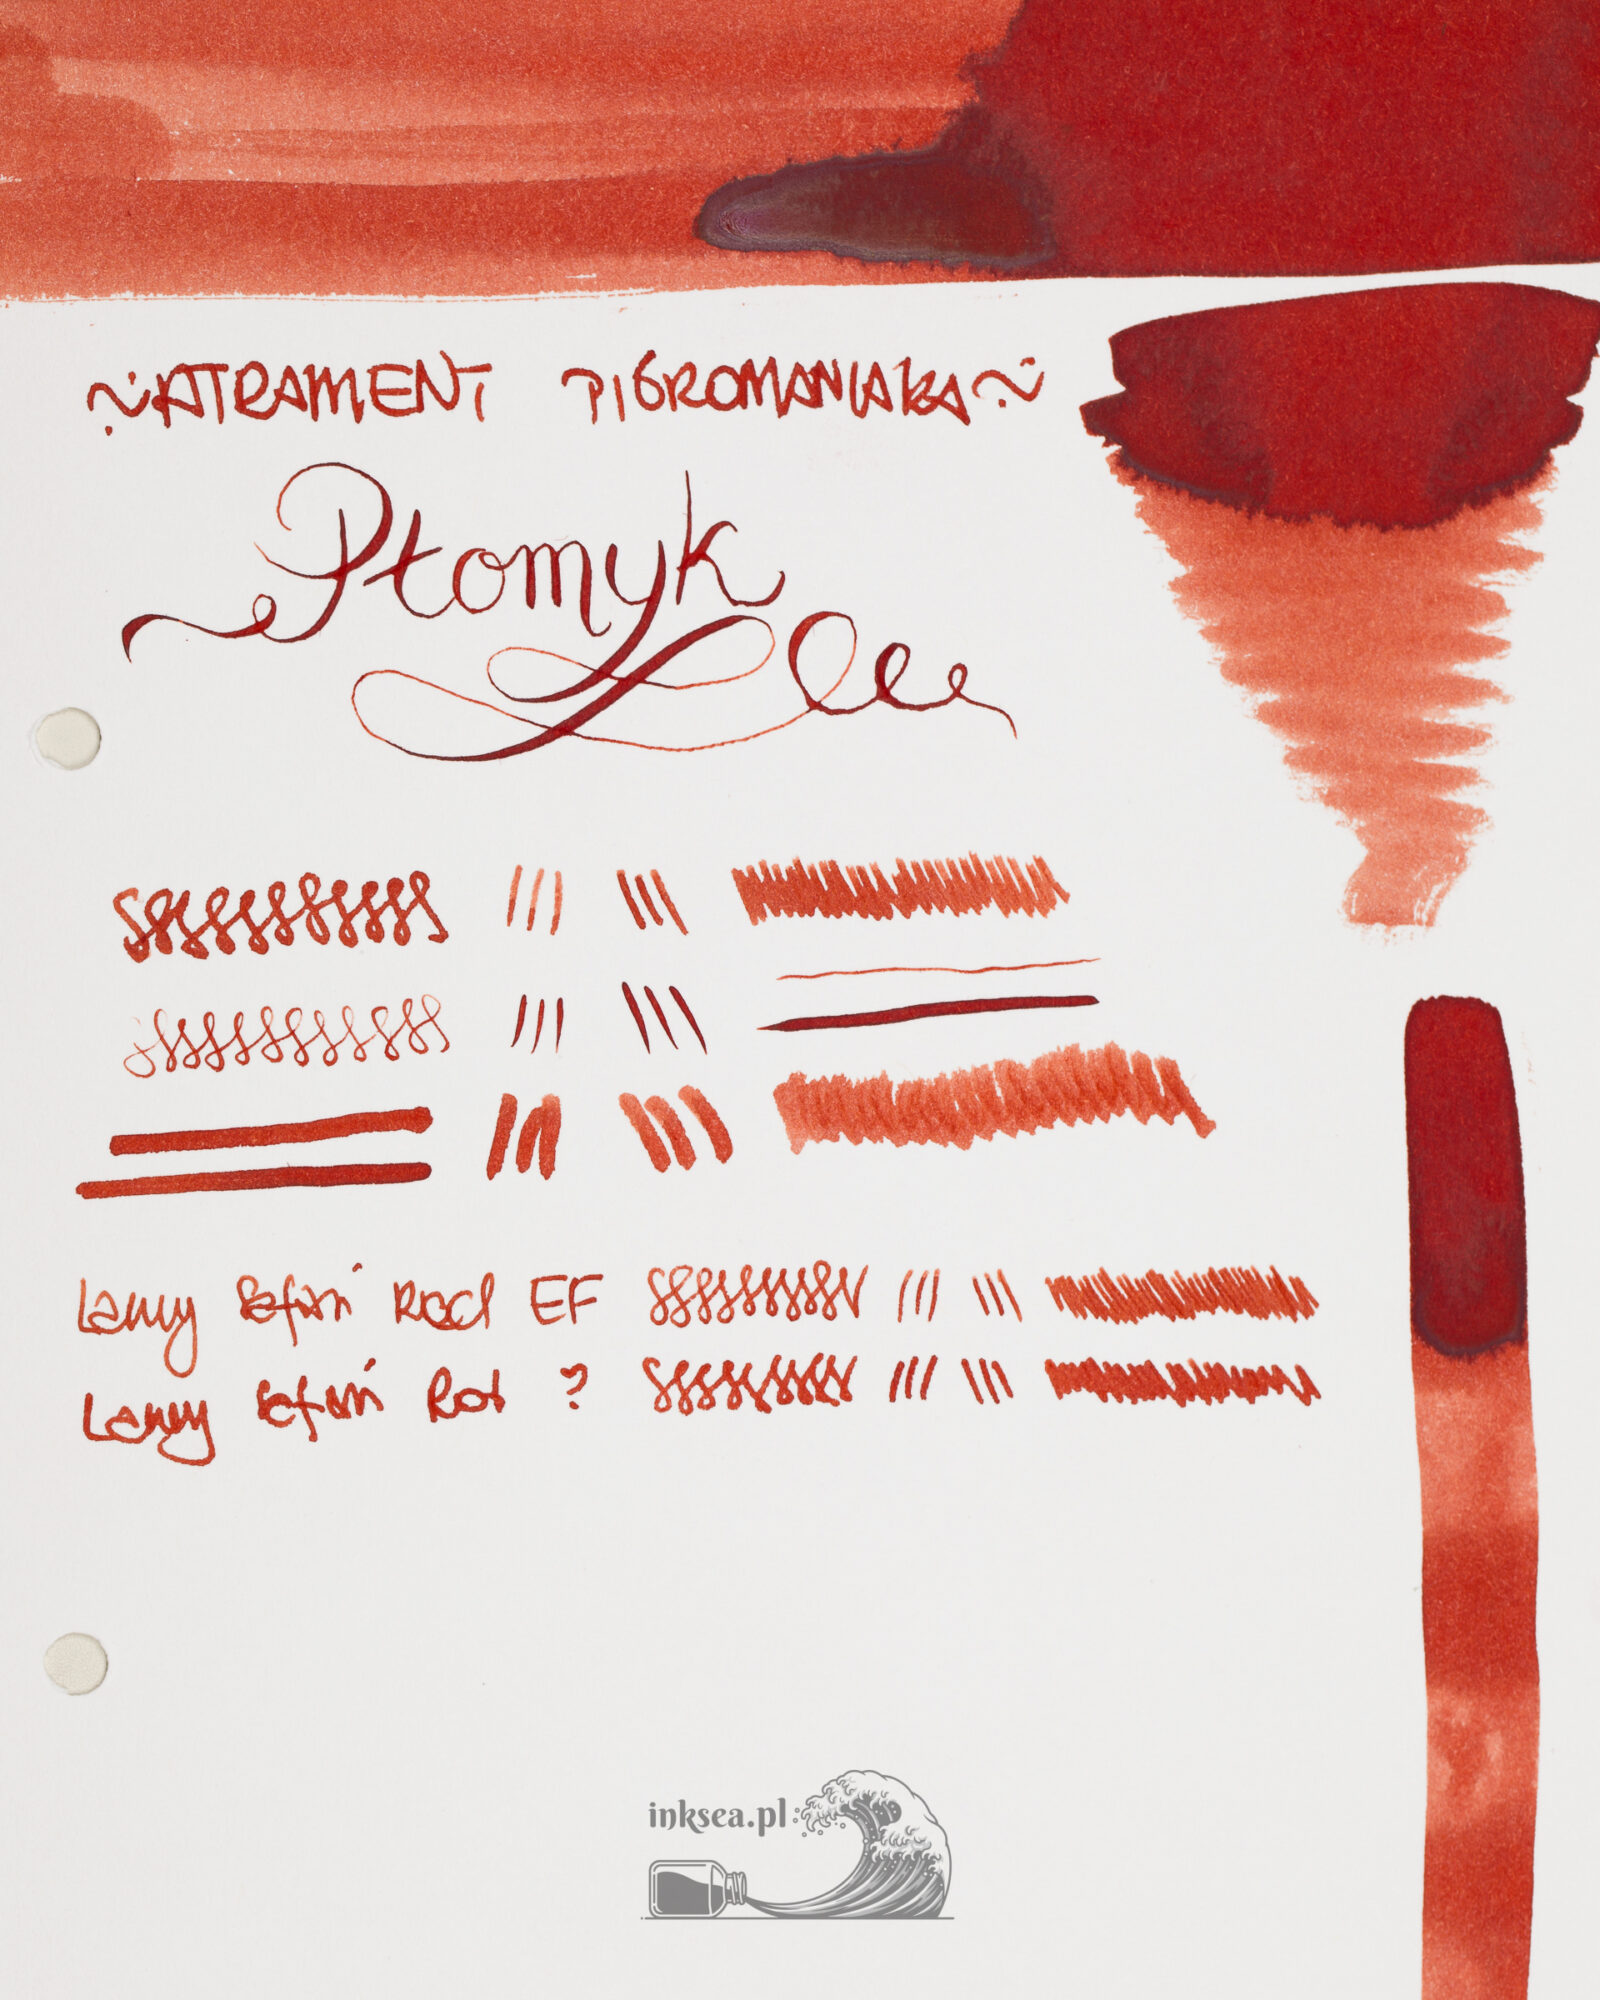 ~ATRAMENT PIÓROMANIAKA~
Płomyk
Lamy Safari Rocd EF
Lamy Safari Rot ?
inksea.pl